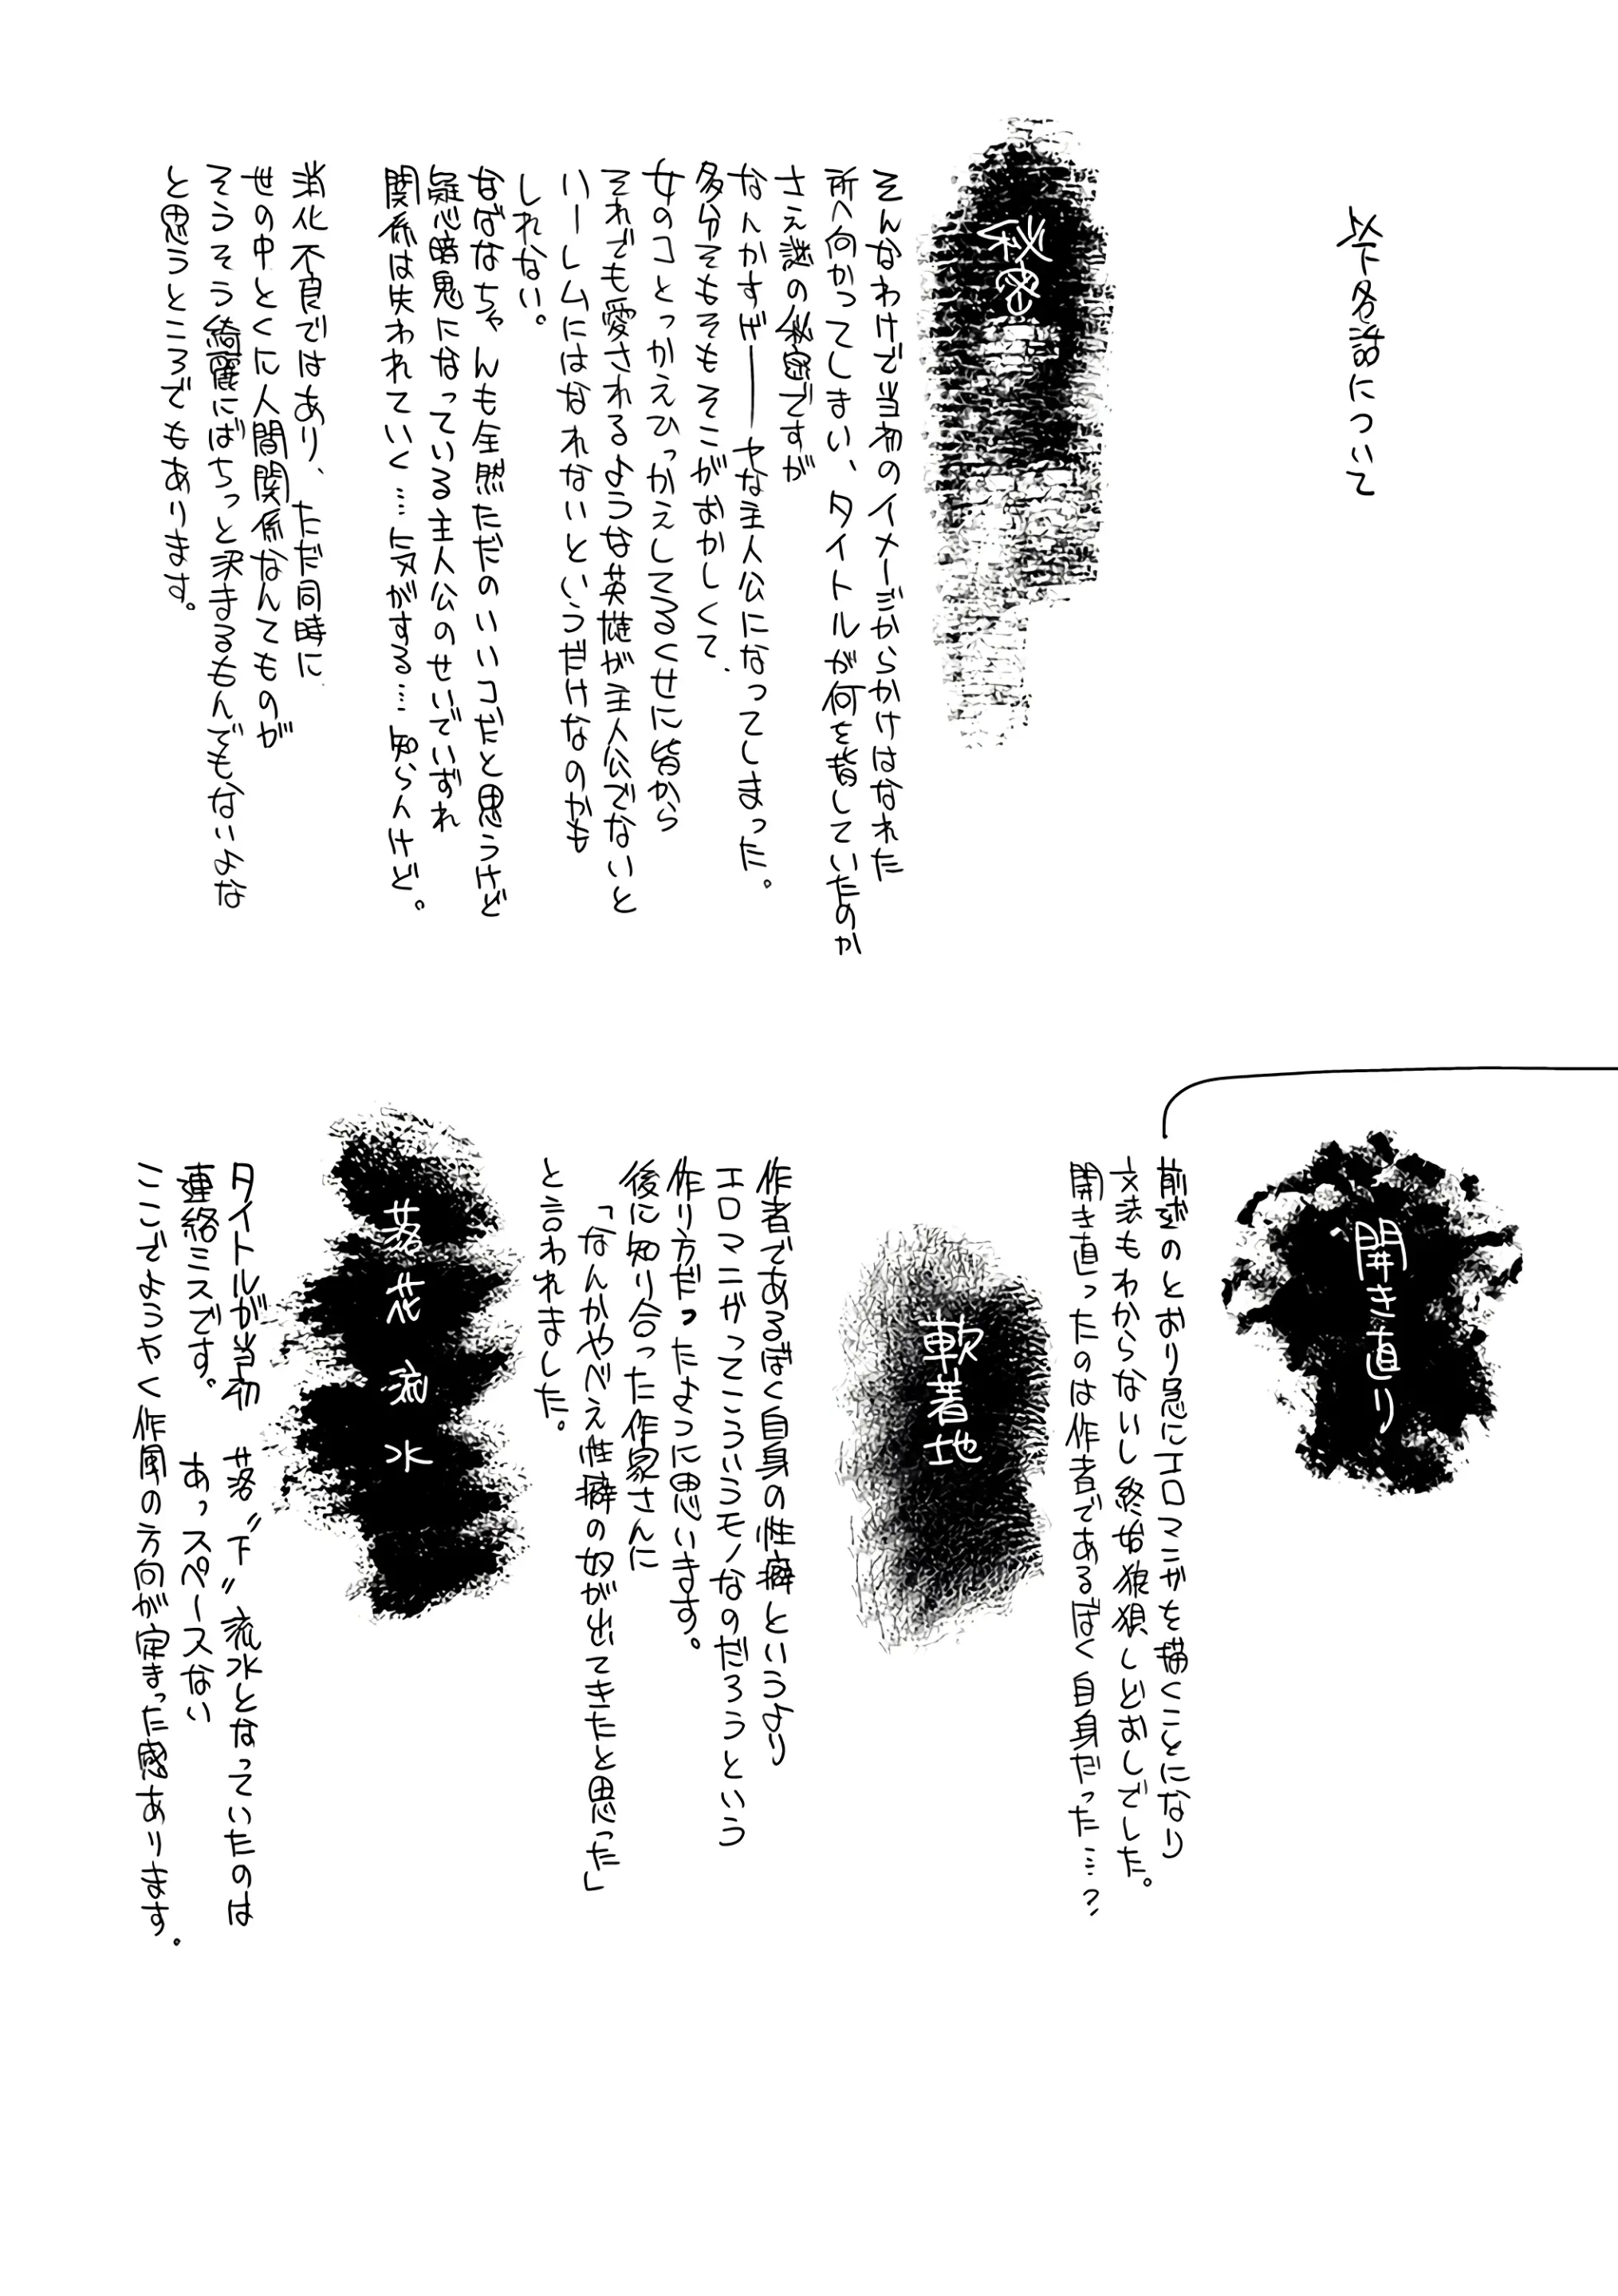 以下各話について
秘密
そんなわけで当初のイメージからかけはなれた
所へ向かってしまい、タイトルが何を指していたのか
さえ謎の秘密ですが
なんかすげ――ヤな主人公になってしまった。
多分そもそもそこがおかしくて、
女のコとっかえひっかえしてるくせに皆から
それでも愛されるような英雄が主人公でないと
ハーレムにはなれないというだけなのかも
しれない。
なばなちゃんも全然ただのいいコだと思うけど
疑心暗鬼になっている主人公のせいでいずれ
関係は失われていく…気がする…知らんけど。
消化不良ではあり、ただ同時に
世の中とくに人間関係なんてものが
そうそう綺麗にばちっと決まるもんでもないよな
と思うところでもあります。
開き直り
前述のとおり急にエロマンガを描くことになり
文法もわからないし終始狼狽しどおしでした。
開き直ったのは作者であるぼく自身だった…?
軟着地
作者であるぼく自身の性癖というより
エロマンガってこういうモノなのだろうという
作り方だったように思います。
後に知り合った作家さんに
「なんかやべえ性癖の奴が出てきたと思った」
と言われました。
落花流水
タイトルが当初 落〝下〟流水となっていたのは
連絡ミスです。 あっスペースない
ここでようやく作風の方向が定まった感あります。